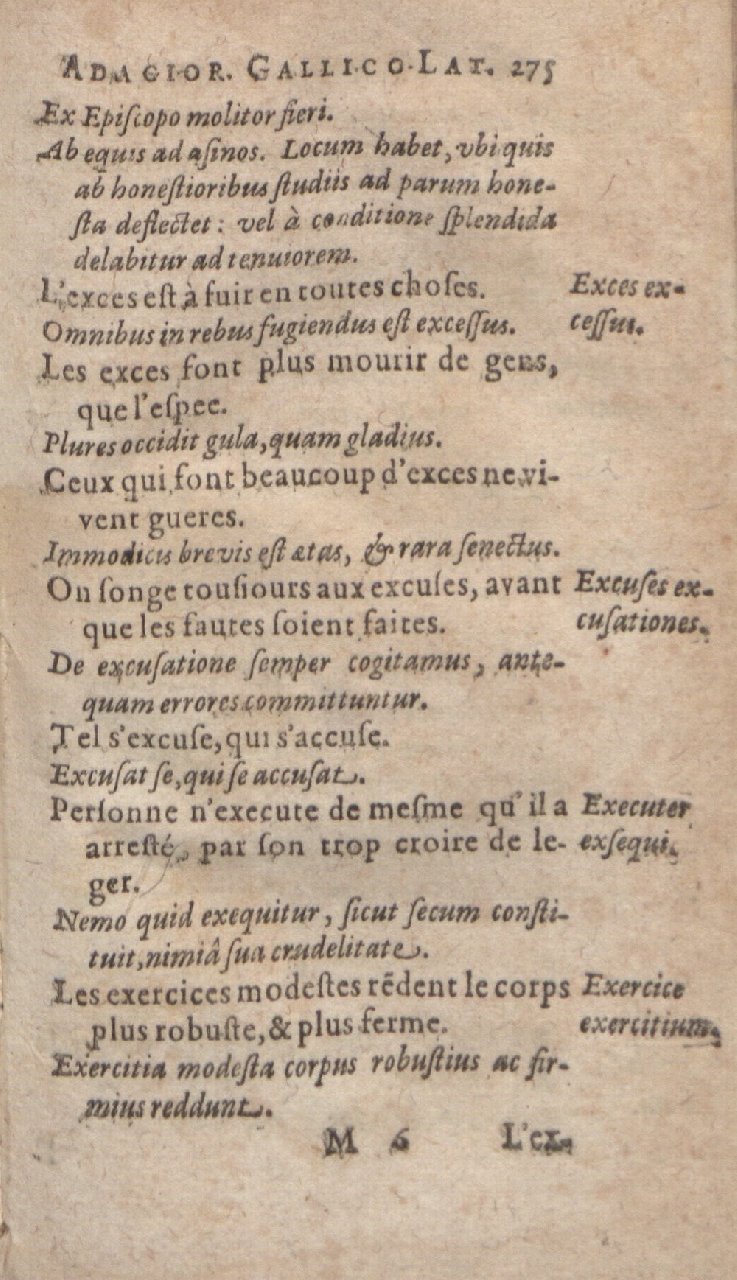 ADAGIOR. GALLICO-LAT. 275
Ex Episcopo molitor fieri.
Ab equis ad asinos. Locum habet, vbi quis
ab honestioribus studiis ad parum hone-
sta deflectet : vel à conditione splendida
delabitur ad tenuiorem.
L'exces est à fuir en toutes choses. Exces ex-
Omnibus in rebus fugiendus est excessus. cessus.
Les exces font plus mourir de gens,
que l'espee.
Plures occidit gula, quam gladius.
Ceux qui font beaucoup d'exces ne vi-
vent gueres.
Immodicis brevis est ætas, & rara senectus.
On songe tousiours aux excuses, avant Excuses ex-
que les fautes soient faites. cusationes.
De excusatione semper cogitamus, ante-
quam errores committuntur.
Tel s'excuse, qui s'accuse.
Excusat se, qui se accusat.
Personne n'execute de mesme qu'il a Executer
arresté, par son trop croire de le- exsequi.
ger.
Nemo quid exequitur, sicut secum consti-
tuit, nimiâ sua crudelitate.
Les exercices modestes rēdent le corps Exercice
plus robuste, & plus ferme. exercitium.
Exercitia modesta corpus robustius ac fir-
mius reddunt.
M 6 L'ex-